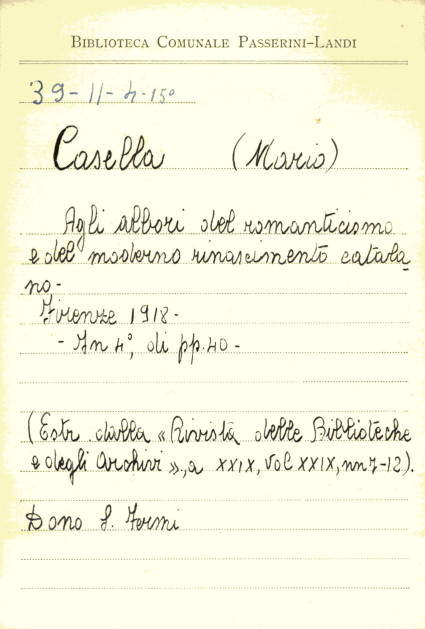 BIBLIOTECA COMUNALE PASSERINI-LANDI
39-11-4-15°
Casella (Mario)
Agli albori del romanticismo
e del moderno rinascimento catala-
no-
Firenze 1918-
- In 4°, di pp. 40-
(Estr. dalla «Rivista delle Biblioteche
e degli Archivi», a XXIX, Vol XXIX, nn 7-12).
Dono S. Fermi